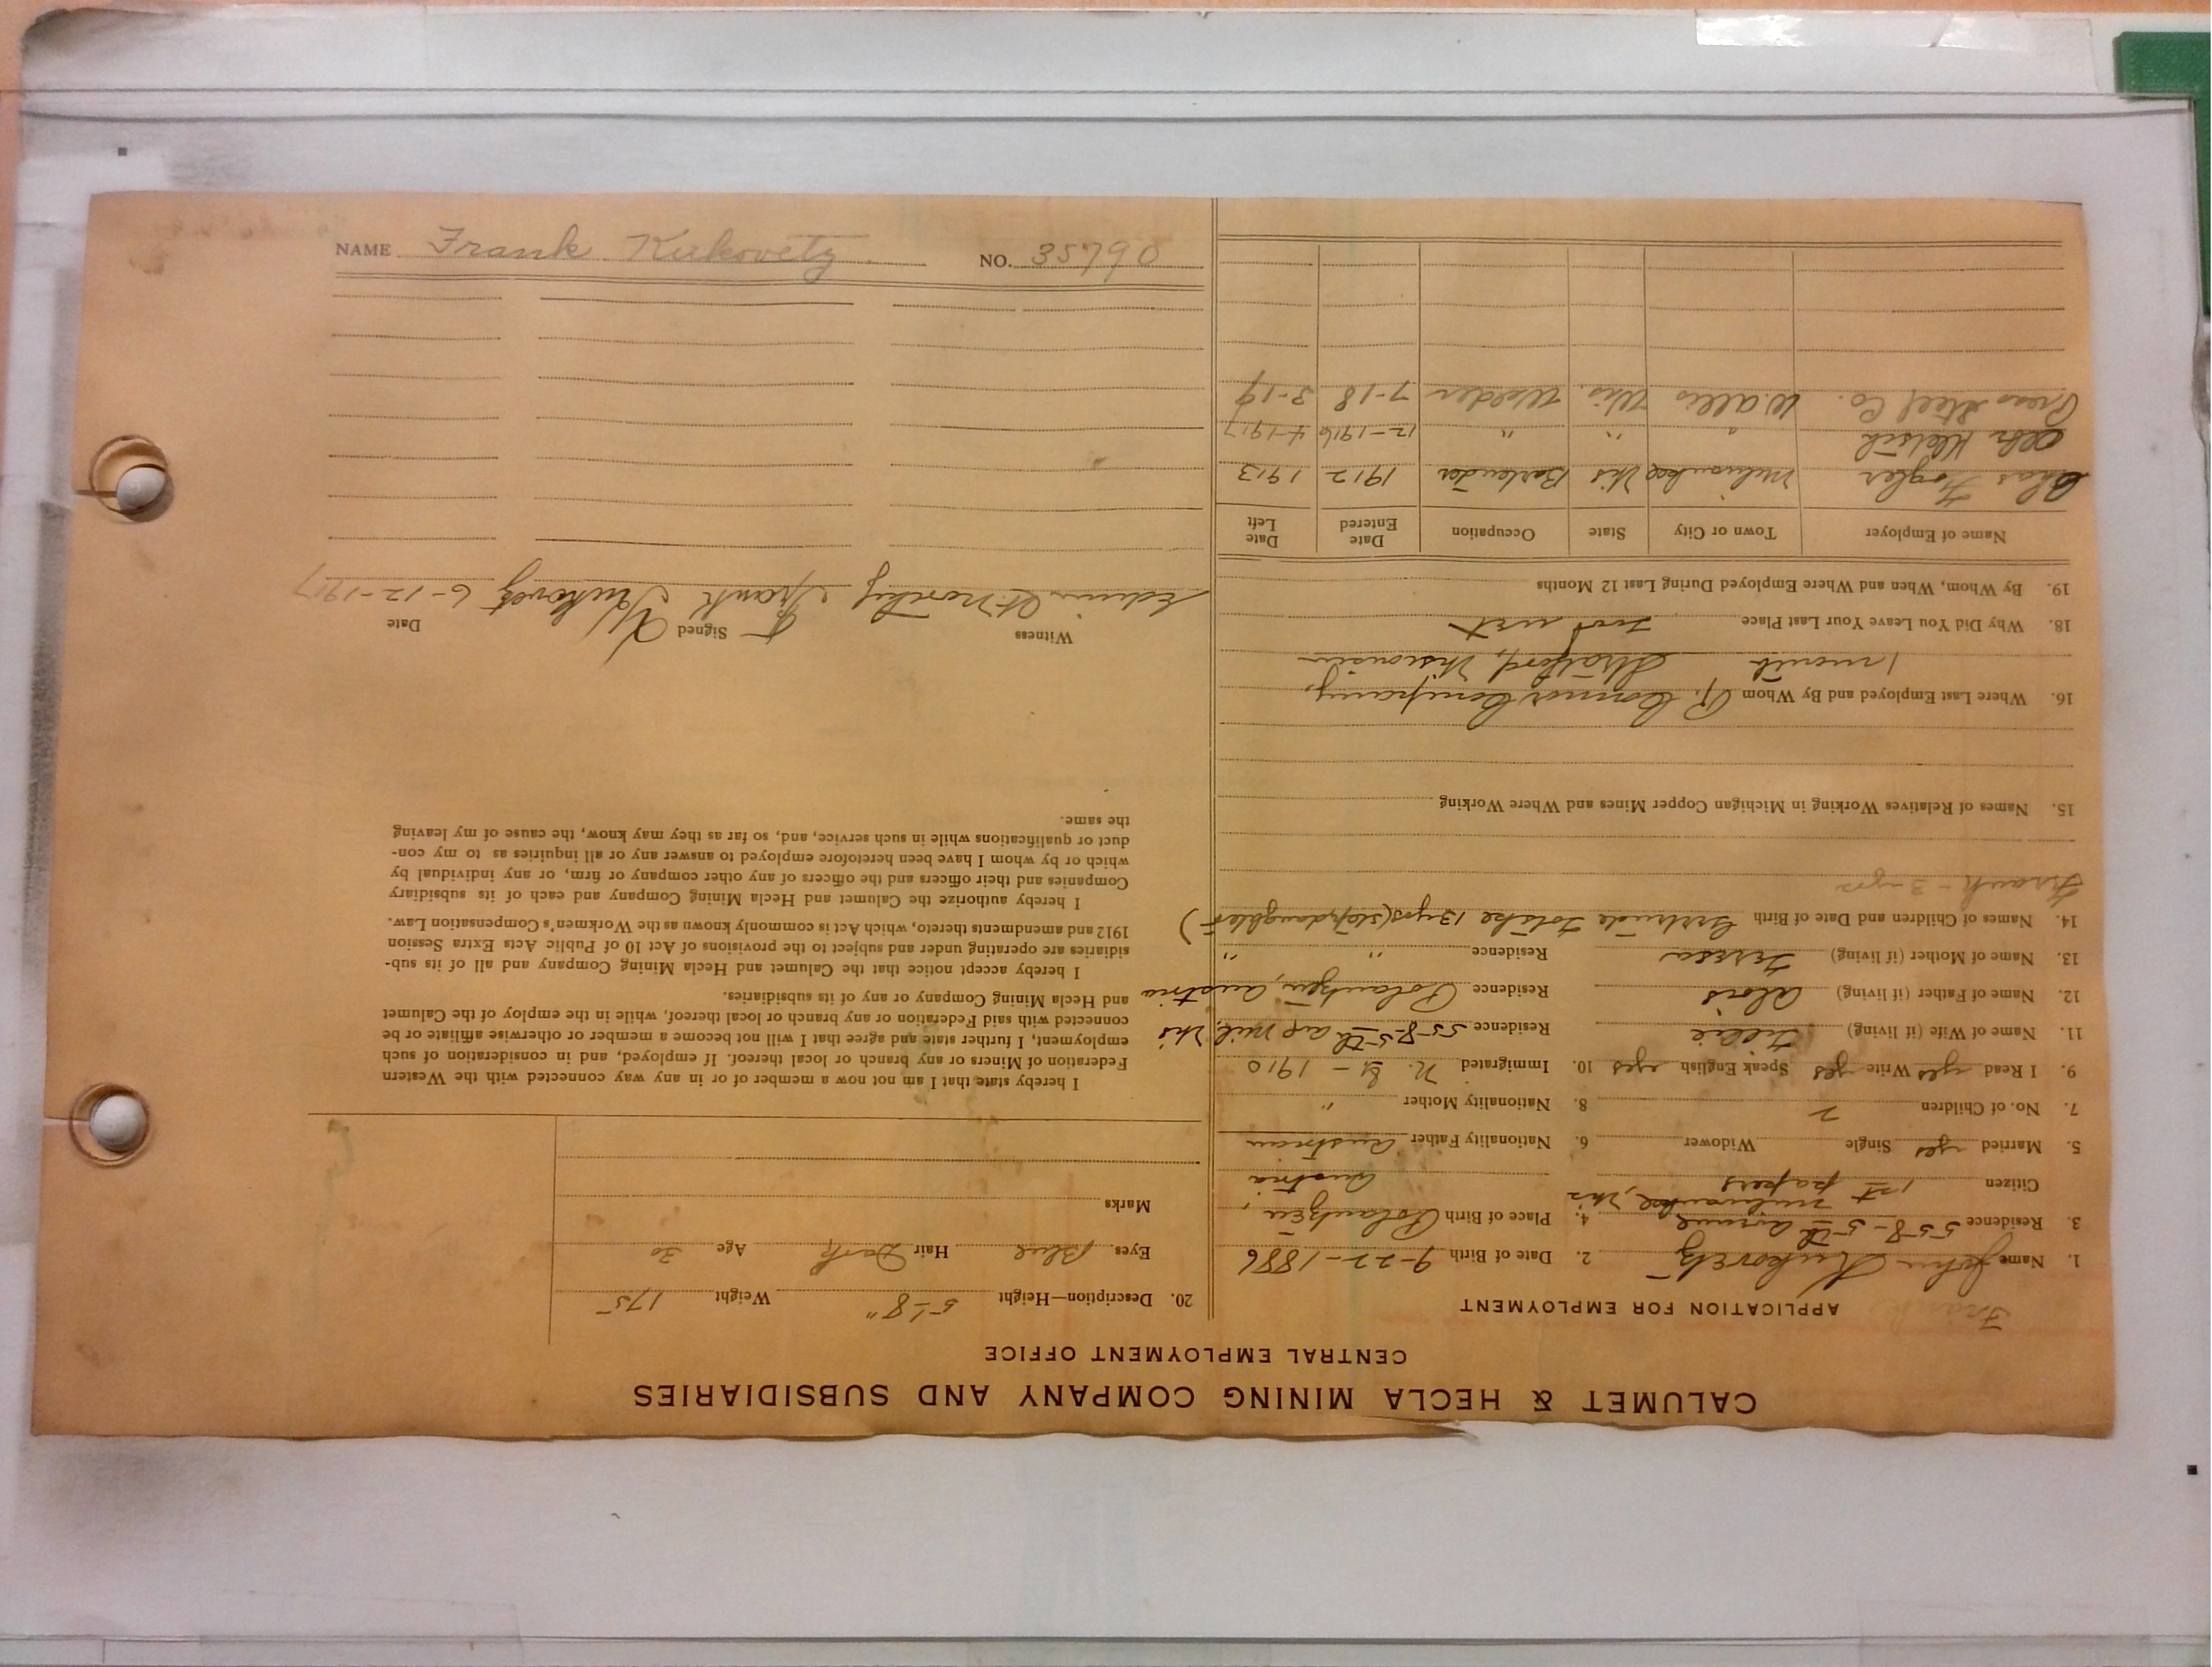 CALUMET & HECLA MINING COMPANY AND SUBSIDIARIES
CENTRAL EMPLOYMENT OFFICE
APPLICATION FOR EMPLOYMENT
Frank
1. Name John Kukovetz 2. Date of Birth 9-22-1886
3. Residence 558-5th Avenue Milwaukee, Wis 4. Place of Birth Polantzen, Austria
Citizen 1st papers
5. Married yes Single Widower 6. Nationality Father Austrian
7. No. of Children 2 8. Nationality Mother "
9. I Read yes Write yes Speak English yes 10. Immigrated N.Y - 1910
11. Name of Wife (if living) Residence 558-5th av Mil, Wis
12. Name of Father (if living) Alois Residence Polantzen, Austria
13. Name of Mother (if living) Teresa Residence " "
14. Names of Children and Date of Birth Gertrude 13 yrs (stepdaughter)
Frank - 3 yrs
15. Names of Relatives Working in Michigan Copper Mines and Where Working
16. Where Last Employed and By Whom R. Connor Company,
1 month Stratford, Wisconsin
18. Why Did You Leave Your Last Place Too wet
19. By Whom, When and Where Employed During Last 12 Months
Name of Employer Town or City State Occupation Date Entered Date Left
Chas Vogler Milwaukee Wis Bartender 1912 1913
" " " 12-1916 4-1917
Press Steel Co. W. Allis Wis. Welder 7-18 3-19
20. Description—Height 5'-8" Weight 175
Eyes Blue Hair Dark Age 30
Marks
I hereby state that I am not now a member of or in any way connected with the Western
Federation of Miners or any branch or local thereof. If employed, and in consideration of such
employment, I further state and agree that I will not become a member or otherwise affiliate or be
connected with said Federation or any branch or local thereof, while in the employ of the Calumet
and Hecla Mining Company or any of its subsidiaries.
I hereby accept notice that the Calumet and Hecla Mining Company and all of its sub-
sidiaries are operating under and subject to the provisions of Act 10 of Public Acts Extra Session
1912 and amendments thereto, which Act is commonly known as the Workmen's Compensation Law.
I hereby authorize the Calumet and Hecla Mining Company and each of its subsidiary
Companies and their officers and the officers of any other company or firm, or any individual by
which or by whom I have been heretofore employed to answer any or all inquiries as to my con-
duct or qualifications while in such service, and, so far as they may know, the cause of my leaving
the same.
Witness Signed Date
Frank Kukovetz 6-12-1917
NAME Frank Kukovetz. NO. 35790